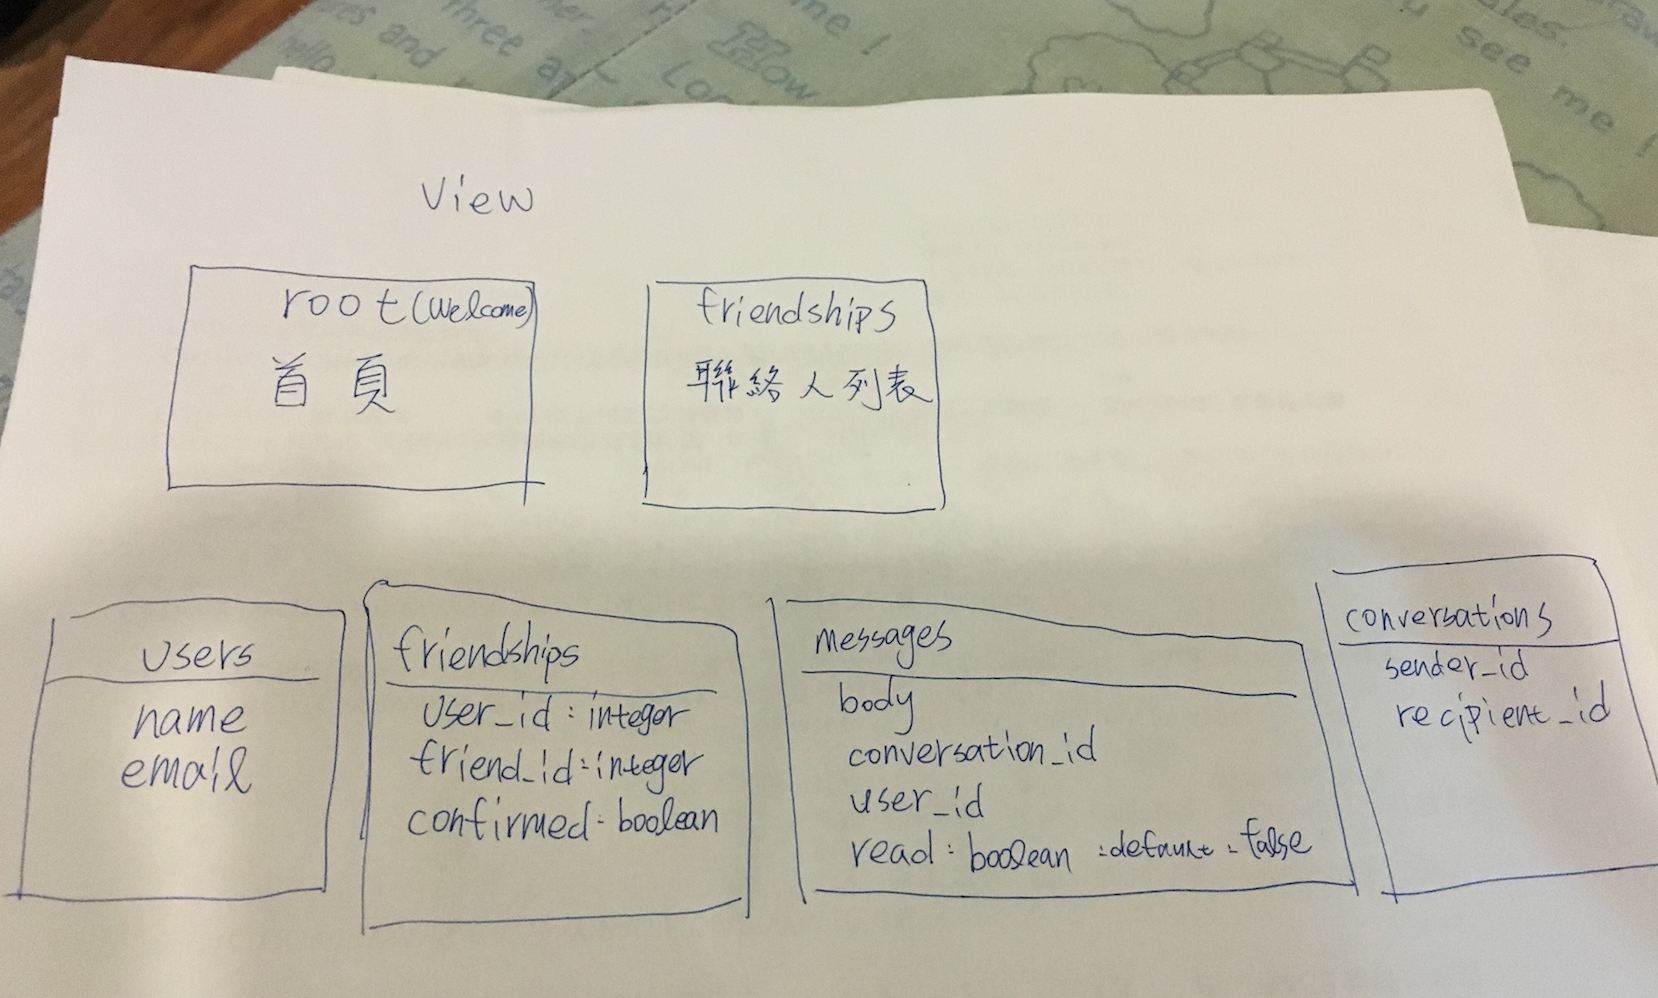 three a
res and
hello
How
Loo
me!
see
me!
View
root(welcome)
首頁
friendships
聯絡人列表
users
name
email
friendships
user_id:integer
friend_id:integer
confirmed:boolean
messages
body
conversation_id
user_id
read:boolean:default:false
conversations
sender_id
recipient_id